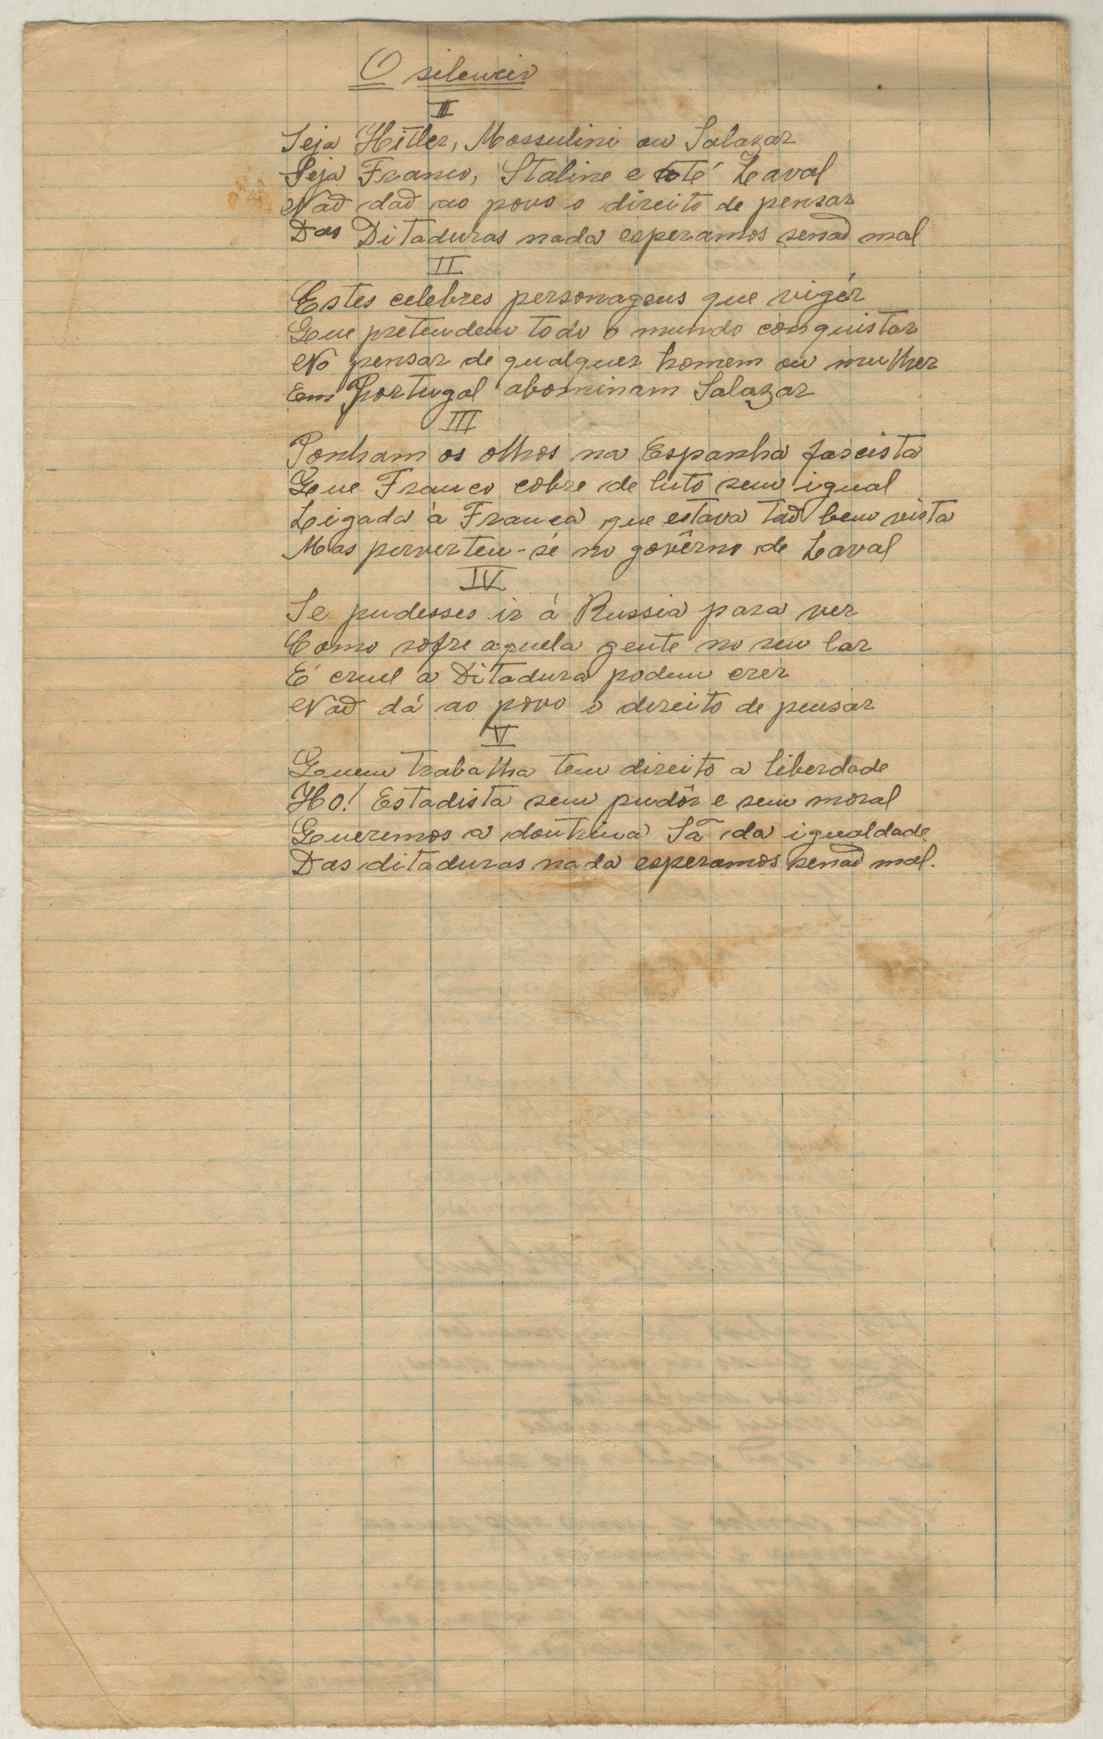 O silencio
II
Seja Hitler, Mossulini ou Salazar
Seja Franco, Staline e até Laval
Naõ daõ ao povo o direito de pensar
Das Ditaduras nada esperamos senaõ mal
II
Estes celebres personagens que vigér
Que pretendem todo o mundo conquistar
No pensar de qualquer homem ou mulher
Em Portugal abominam Salazar
III
Ponham os olhos na Espanha fascista
Que Franco cobre de luto sem igual
Ligada á Franca que estava taõ bem vista
Mas perverteu-se no govêrno de Laval
IV
Se pudesses ir á Russia para ver
Como sofre aquela gente no seu lar
É cruel a Ditadura podem crer
Naõ dá ao povo o direito de pensar
V
Quem trabalha tem direito a liberdade
HO! Estadista sem pudôr e sem moral
Queremos a doutrina Sã da igualdade
Das ditaduras nada esperamos senaõ mal.